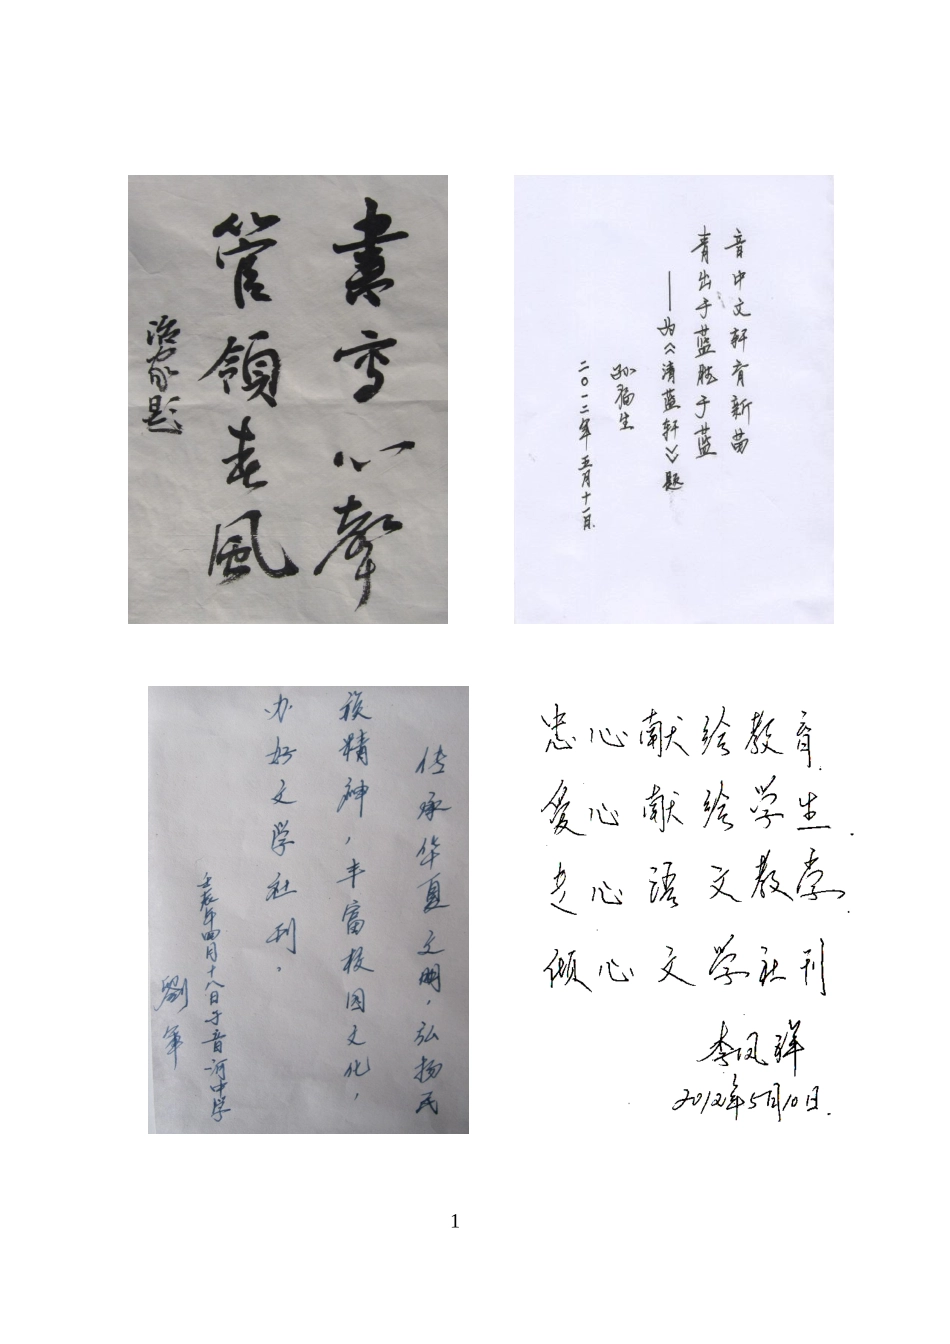 書寫心聲
管領春風
治家題
音中文轩育新苗
青出于蓝胜于蓝
——为《清蓝轩》题
孙福生
二〇一二年五月十一日
传承华夏文明，弘扬民
族精神，丰富校园文化，
办好文学社刊。
壬辰年四月十八日于音河中学
劉軍
忠心献给教育
爱心献给学生
走心语文教学
倾心文学社刊
李凤祥
2012年5月10日.
1